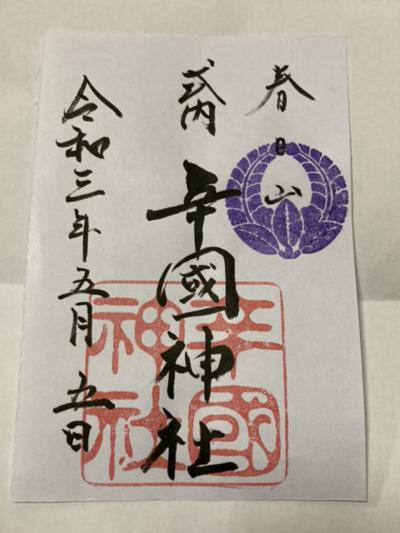 春日山
式内
辛國神社
令和三年五月五日
辛國神社